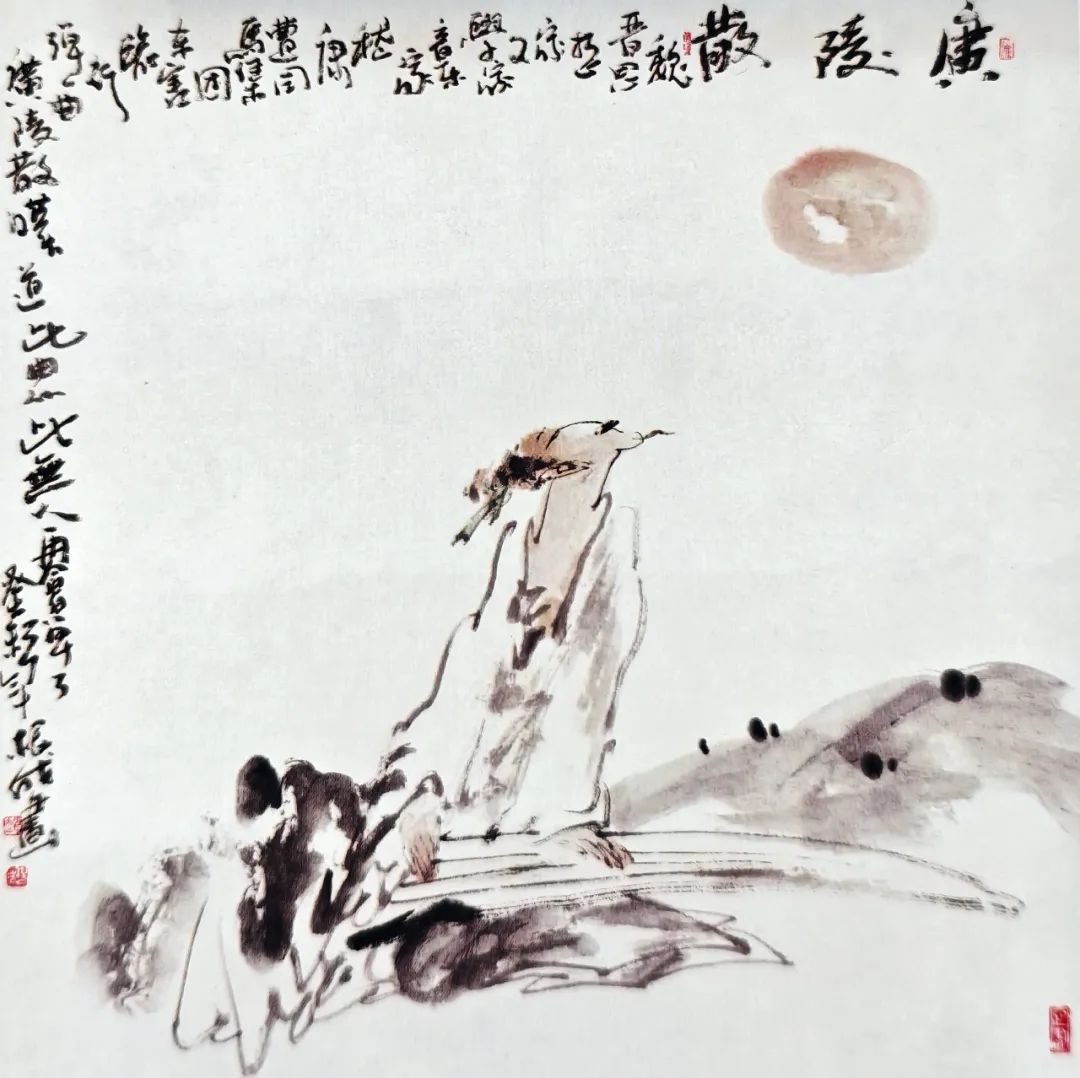 廣陵散
魏晉思想家文學家音樂家嵇康遭司馬集团杀害臨行
弹一曲
廣陵散嘆道此曲從此無人再會弹了
癸卯年振 畫